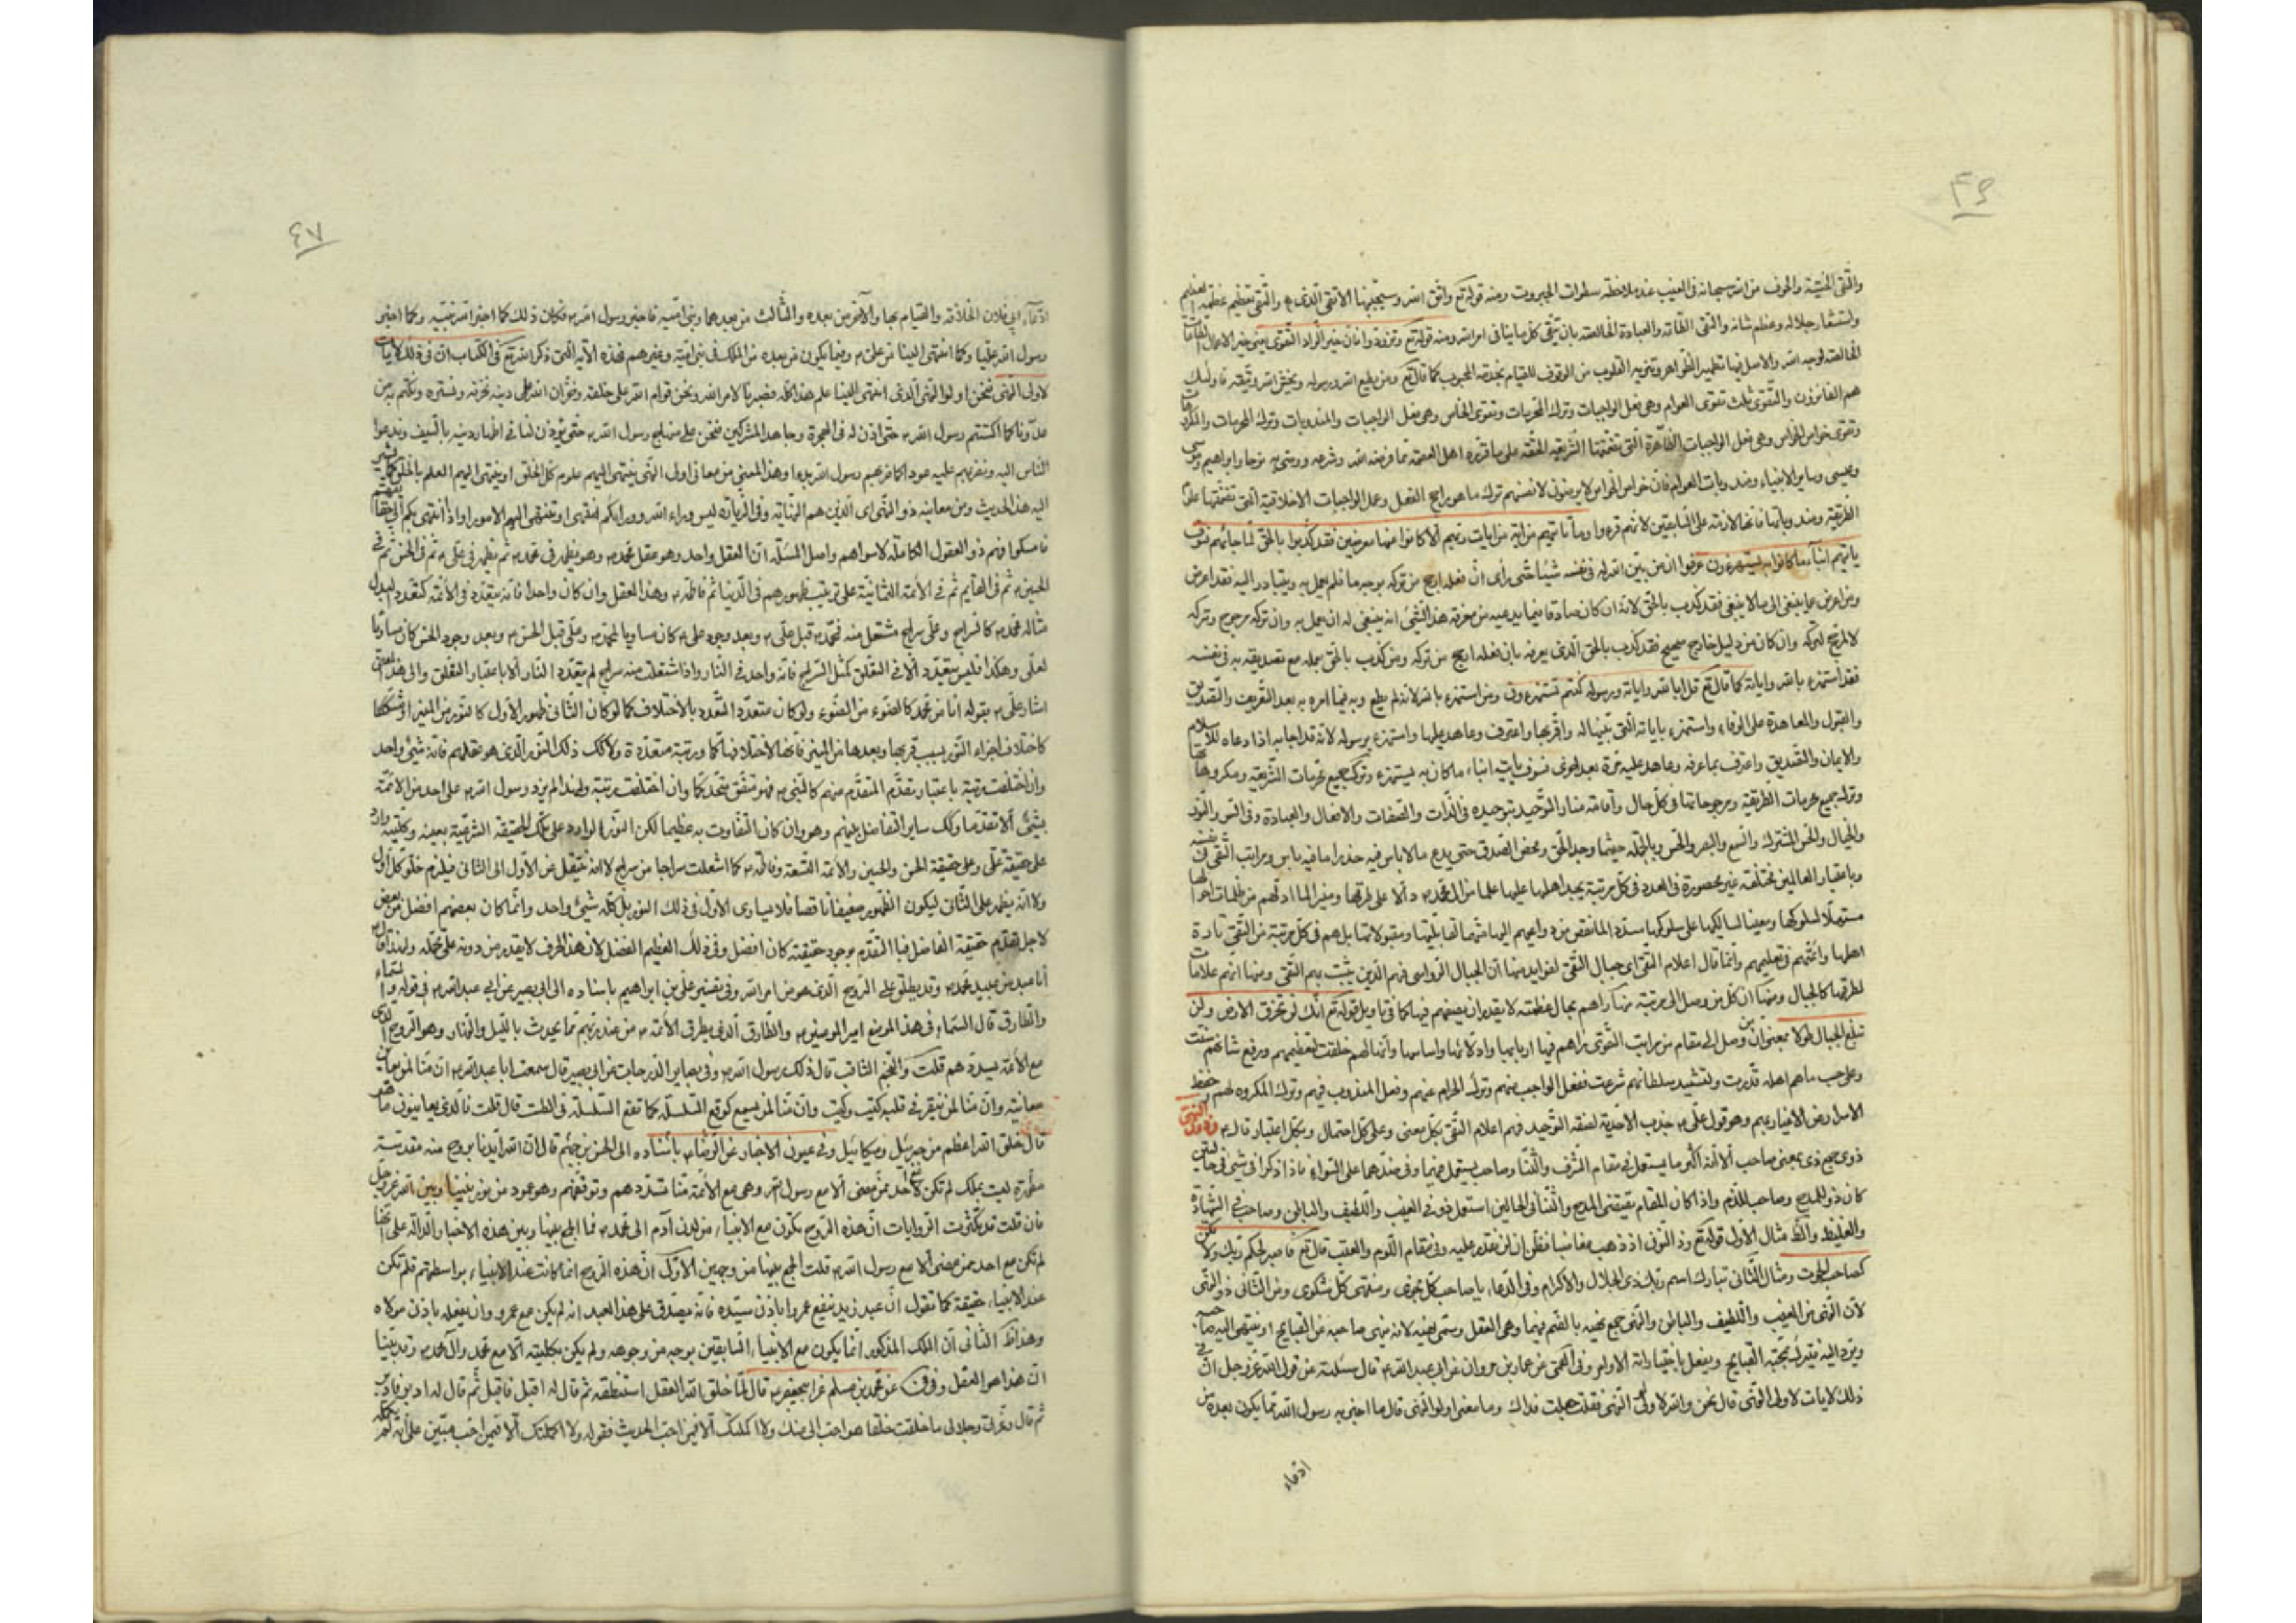 ٤٦
والتقى الخشية والخوف من الله سبحانه في الغيب عند ملاحظة سطوات الجبروت ومنه قوله تع واتق الله وسيجنبها الاتقى الذي والتقى تعظيم عظمة الله
واستشعار جلاله وعظم شانه والتقى الطاعة والعبادة الخالصة بان تتقى كل ما ينافي امر الله ومنه قوله تع وتزودوا فان خير الزاد التقوى يعني خير الاعمال الطاعات
الخالصة لوجه الله والاصل فيها تطهير الظواهر وتنزيه القلوب من الوقوف للقيام بخدمة المحبوب كما قال تع ومن يطع الله ورسوله ويخش الله ويتقه فاولئك
هم الفائزون والتقوى ثلث تقوى العوام وهي فعل الواجبات وترك المحرمات وتقوى الخاص وهي فعل الواجبات والمندوبات وترك المحرمات والمكروهات
وتقوى خواص الخواص وهي فعل الواجبات الظاهرة التي تضمنتها الشريعة الحقة على ما قرره اهل العصمة مما فرضه الله وشرعه ووصى به نوحا وابراهيم وموسى
وعيسى وساير الانبياء ومندوبات العوام فان خواص الخواص لا يرضون لانفسهم ترك ما هو راجح الفعل وعمل الواجبات الاخلاقية التي تضمنها علم
الطريقة ومندوباتها فانها لازمة على السابقين لانهم قرءوا وما تاتيهم من اية من ايات ربهم الا كانوا عنها معرضين فقد كذبوا بالحق لما جائهم فسوف
ياتيهم انباء ما كانوا به يستهزءون عرفوا ان من تبين الله له في نفسه شيئا حتى راى ان فعله ارجح من تركه بوجه ما فلم يعمل به ويتبادر اليه فقد اعرض
ومن اعرض عما ينبغي الى ما لا ينبغي فقد كذب بالحق لانه ان كان صادقا فيما يدعيه من معرفة هذا الشئ انه ينبغي له ان يعمل به وان تركه مرجوح وتركه
لا لمرجح لتركه وان كان من دليل خارج صحيح فقد كذب بالحق الذي يعرفه بان فعله ارجح من تركه ومن كذب بالحق بعمله مع تصديقه به في نفسه
فقد استهزء بالله واياته كما قال تع قل ابالله واياته ورسوله كنتم تستهزءون ومن استهزء بالله لانه لم يطع ربه فيما امره به بعد التعريف والتصديق
والقبول والمعاهدة على الوفاء واستهزء باياته التي تبينها له واقر بها واعترف وعاهد عليها واستهزء برسوله لانه قد اجابه اذا دعاه للاسلام
والايمان والتصديق واعترف بما عرفه وعاهد عليه مرة بعد اخرى فسوف ياتيه انباء ما كان به يستهزء وترك جميع محرمات الشريعة ومكروهاتها
وترك جميع محرمات الطريقة ومرجوحاتها في كل حال واقامة منار التوحيد بتوحيده في الذات والصفات والافعال والعبادة وفي
والخيال والحس المشترك والسمع والبصر والحس وبالجملة حيثما وجد الحق ومحض الصدق حتى يدع ما لا باس فيه حذرا مما فيه باس ومراتب التقى في نفسه
وباعتبار العالمين مختلفة غير محصورة في العدد في كل مرتبة يجد اهلها عليها علما من ال محمد دالا على طرقها ومنيرا لما ادلهم من ظلمات اجزائها
مسهلا لسلوكها ومعينا لسالكيها على سلوكها مسددا لما نقص من دواعيهم اليها متمما لقابلياتها ومقبولاتها بل هم في كل مرتبة من التقى قادة
اهلها وائمتهم في تعليمهم وانما قال اعلام التقى اي جبال التقى لفوايد منها ان الجبال الرواسي فهم الذين يثبت بهم التقى ومنها انهم علامات
لطرقها كالجبال ومنها ان كل من وصل الى مرتبة منها راهم بحال عظمة لا يقدر ان يصفهم فيها كما في تاويل قوله تع انك لن تخرق الارض ولن
تبلغ الجبال طولا بمعنى ان من وصل الى مقام من مراتب التقوى راهم فيها اربابها وادلائها واساسها وانما لهم خلقت لتعظيمهم ورفع شانهم سننت
وعلى حسب ما هم اهله قدرت ولتشييد سلطانهم شرعت ففعل الواجب منهم وترك الحرام عنهم وفعل المندوب فيهم وترك المكروه لهم وحفظ
الاسرار من الاغيار بهم وهو قول علي جذب الاحدية لصفة التوحيد فهم اعلام التقى بكل معنى وعلى كل احتمال وبكل اعتبار قال وذوي النهى
ذوى جمع ذي بمعنى صاحب الا انه اكثر ما يستعمل في مقام الشرف والثناء وصاحب يستعمل فيهما وفي ضدهما على السواء فاذا ذكرا في شئ في حالتين
كان ذو للمدح وصاحب للذم واذا كان المقام يقتضي المدح والثناء في الحالين استعمل ذو في الغيب واللطيف والباطن وصاحب في الشهادة
والغليظ والظ مثال الاول قوله تع وذا النون اذ ذهب مغاضبا فظن ان لن نقدر عليه وفي مقام اللوم والعتب قال تع فاصبر لحكم ربك ولا تكن
كصاحب الحوت ومثال الثاني تبارك اسم ربك ذي الجلال والاكرام وفي الدعاء يا صاحب كل نجوى ومنتهى كل شكوى ومن الثاني ذو النهى
لان النهى من الغيب واللطيف والباطن والنهى جمع نهية بالضم فيهما وهي العقل وسمى نهية لانه ينهى صاحبه عن القبايح او ينتهى اليه صاحبه
ويرد اليه فيترك بنهيه القبايح ويفعل باختياراته الاولى وفي القمى عن عمار بن مروان عن ابي عبد الله قال سئلته عن قول الله عز وجل ان في
ذلك لايات لاولى النهى قال نحن والله اولى النهى فقلت جعلت فداك وما معنى اولوا النهى قال ما اخبر به رسول الله مما يكون بعده من
ادعاء
٤٧
ادعاء ابي فلان الخلافة والقيام بها والآخر من بعده والثالث من بعدهما وبني امية فاخبر رسول الله فكان ذلك كما اخبر الله نبيه وكما اخبر
رسول الله عليا وكما انتهى الينا من علي فيما يكون من بعده من الملك في بني امية وغيرهم فهذه الآية التي ذكر الله تع في الكتاب ان في ذلك لايات
لاولى النهى فنحن اولوا النهى الذي انتهى الينا علم هذا كله فصبرنا لامر الله ونحن قوام الله على خلقه وخزان الله على دينه نخزنه ونستره ونكتم به من
عدونا كما اكتتم رسول الله حتى اذن له في الهجرة وجاهد المشركين فنحن على منهاج رسول الله حتى يؤذن لنا في اظهار دينه بالسيف وندعوا
الناس اليه ونضربهم عليه عودا كما ضربهم رسول الله بدءا وهذا المعنى من معاني اولى النهى ينتهى اليهم علوم كل الخلق او ينتهى اليهم العلم بالخلق كما يشير
اليه هذا الحديث ومن معانيه ذو النهى اي الذين هم النهاية وفي الزيارة ليس وراء الله ووراءكم منتهى او تنتهى اليهم الامور
فامسكوا فهم ذو العقول الكاملة لا سواهم واصل المسئلة ان العقل واحد وهو عقل محمد وهو يظهر في محمد ثم يظهر في علي ثم في الحسن ثم في
الحسين ثم في القائم ثم في الأئمة الثمانية على ترتيب ظهورهم في الدنيا ثم فاطمة وهذا العقل وان كان واحدا فانه يتعدد في الأئمة كتعدد البدل
مثاله محمد كالسراج وعلي سراج مشتعل منه فمحمد قبل علي وبعد وجود علي كان مساويا لمحمد وعلى قبل الحسن وبعد وجود الحسن كان مساويا
لعلي وهكذا فليس بتعدد الا في التعلق كمثل السراج فانه واحد في النار واذا اشتعلت منه سراج لم يتعدد النار الا باعتبار التعلق والى هذا المعنى
اشار علي بقوله انا من محمد كالضوء من الضوء ولو كان متعدد التعدد بالاختلاف كما لو كان الثاني ظهور الاول كالنور من المنير
كاختلاف اجزاء النور بسبب قربها وبعدها من المنير فانها لاختلافها كما ورتبة متعددة ولا كك ذلك النور الذي هو عقلهم فانه شئ واحد
وان اختلفت رتبته باعتبار تقدم المتقدم منهم كالنبي فهو متفق متحد كما وان اختلفت رتبته ولهذا لم يزد رسول الله على احد من الأئمة
بشئ الا تقدما وكك ساير التفاضل بينهم وهو وان كان التفاوت به عظيما لكن النور الوارد على تلك الحقيقة الشريفة بعينه وكليته وارد
على حقيقة علي وعلى حقيقة الحسن والحسين والأئمة التسعة وفاطمة كما اشعلت سراجا من سراج لا انه ينتقل عن الاول الى الثاني فيلزم خلو كل اول
ولا انه يظهر على الثاني ليكون الظهور ضعيفا ناقصا فلا يساوى الاول في ذلك النور بل كله شئ واحد وانما كان بعضهم افضل من بعض
لاجل تقدم حقيقة الفاضل فبالتقدم بوجود حقيقته كان افضل وفي ذلك العظيم الفضل لان هذا الحرف لا يقدر من دونه على تحمله ولهذا قال
انا عبد من عبيد محمد وقد يطلق على الروح الذي هو من امر الله وفي تفسير علي بن ابراهيم باسناده الى ابي بصير عن ابي عبد الله في قوله والسماء
والطارق قال السماء في هذا الموضع امير المؤمنين والطارق الذي يطرق الأئمة من عند ربهم مما يحدث بالليل والنهار وهو الروح الذي
مع الأئمة يسددهم قلت والنجم الثاقب قال ذلك رسول الله وفي بصاير الدرجات عن ابي بصير قال سمعت ابا عبد الله ان منا لمن يعاين
معاينة وان منا لمن ينقر في قلبه كيت وكيت وان منا لمن يسمع كوقع السلسلة كما تقع السلسلة في الطست قال قلت فالذي يعاينون ما هو
قال خلق الله اعظم من جبرئيل وميكائيل وفي عيون الاخبار عن الرضا باسناده الى الحسن بن جهم قال ان الله ايدنا بروح منه مقدسة
مطهرة ليست بملك لم تكن مع احد ممن مضى الا مع رسول الله وهي مع الأئمة منا تسددهم وتوفقهم وهو عمود من نور بيننا وبين الله عز وجل
فان قلت قد تكثرت الروايات ان هذه الروح تكون مع الانبياء من لدن آدم الى محمد فما الجمع بينها وبين هذه الاخبار الدالة على انها
لم تكن مع احد ممن مضى الا مع رسول الله قلت الجمع بينهما من وجهين الاول ان هذه الروح انما كانت عند الانبياء بواسطتهم فلم تكن
عند الانبياء حقيقة كما تقول ان عبد زيد ينفع عمروا باذن سيده فانه يصدق على هذا العبد انه لم يكن مع عمرو وان ينفعه باذن مولاه
وهذا ظ الثاني ان الملك المذكور انما يكون مع الانبياء السابقين بوجه من وجوهه ولم يكن بكليته الا مع محمد وآل محمد وقد بينا
ان هذا هو العقل وفي عن محمد بن مسلم عن ابي جعفر قال لما خلق الله العقل استنطقه ثم قال له اقبل فاقبل ثم قال له ادبر فادبر
ثم قال وعزتي وجلالي ما خلقت خلقا هو احب الى منك ولا اكملتك الا فيمن احب الحديث فقوله ولا اكملتك الا فيمن احب مبين على انه لم يكمله